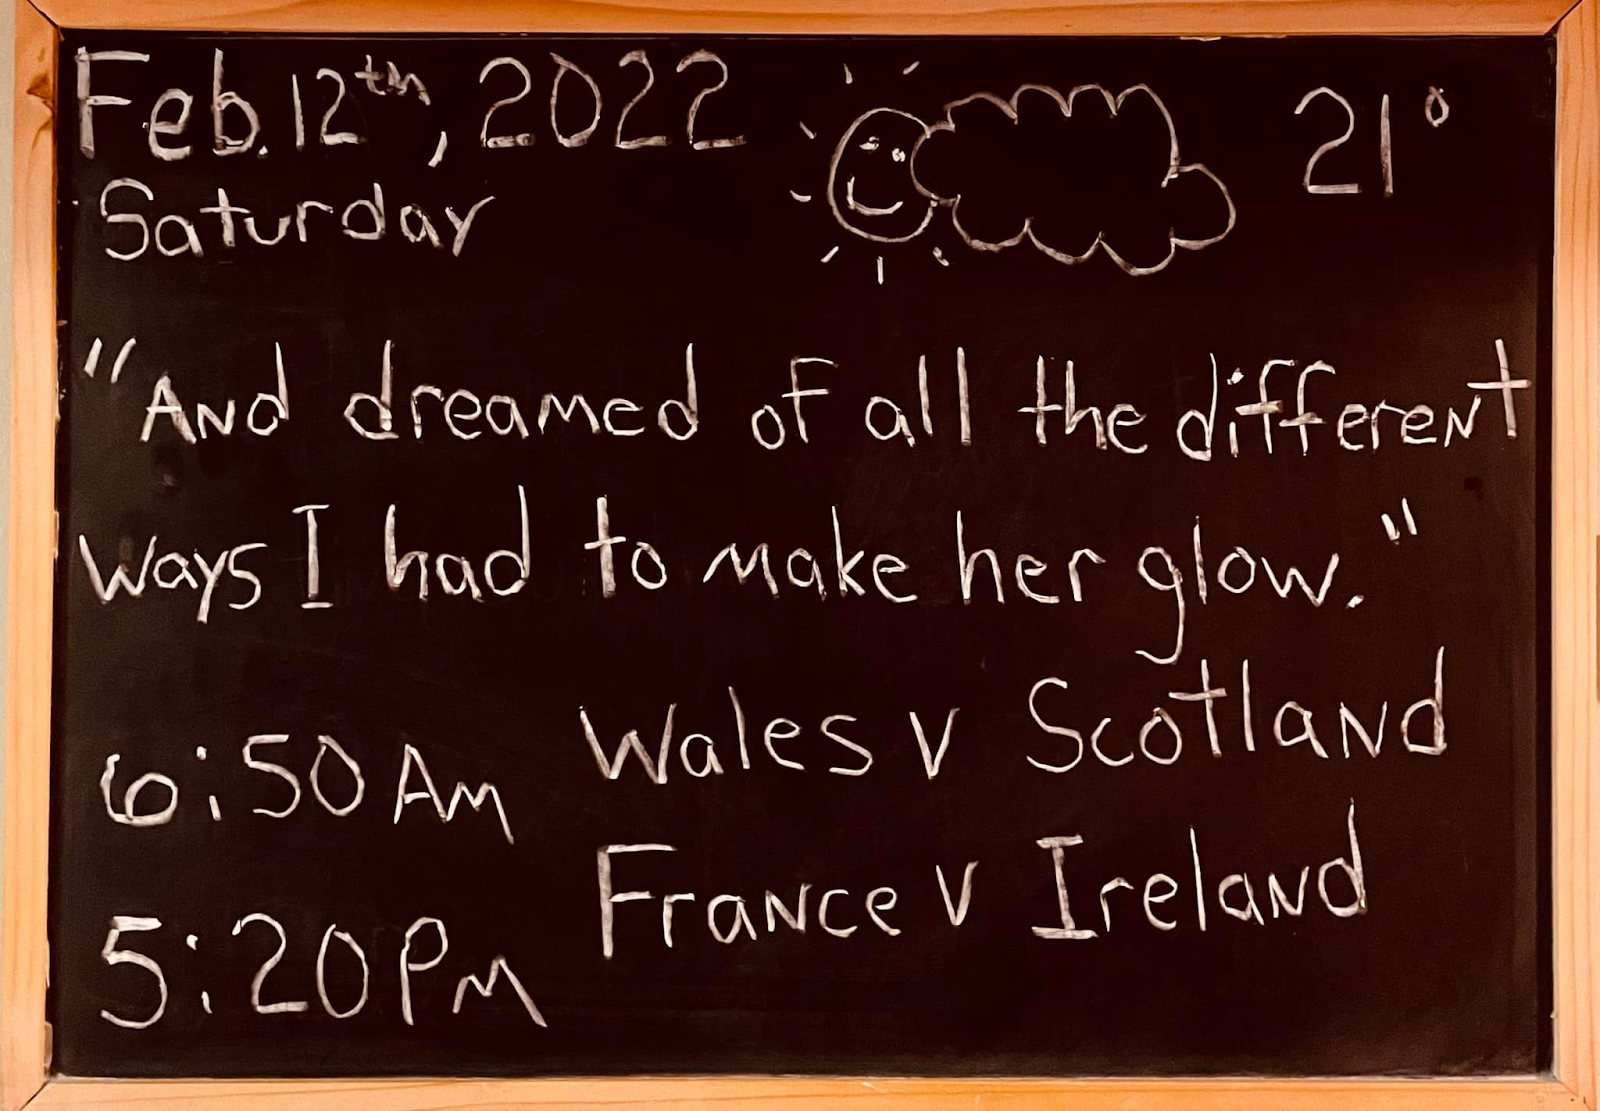 Feb. 12th, 2022
21°
Saturday
"And dreamed of all the different
ways I had to make her glow."
6:50 AM
Wales v Scotland
France v Ireland
5:20 PM